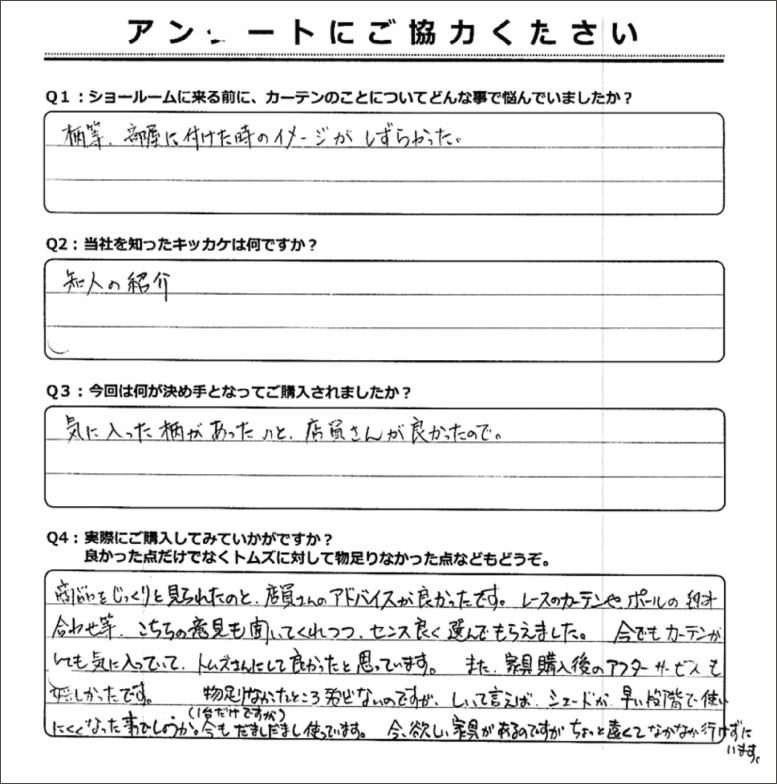 アン ートにご協力ください
Q1：ショールームに来る前に、カーテンのことについてどんな事で悩んでいましたか？
柄等、部屋に付けた時のイメージがしずらかった。
Q2：当社を知ったキッカケは何ですか？
知人の紹介
Q3：今回は何が決め手となってご購入されましたか？
気に入った柄があったのと、店員さんが良かったので。
Q4：実際にご購入してみていかがですか？
良かった点だけでなくトムズに対して物足りなかった点などもどうぞ。
商品をじっくりと見られたのと、店員さんのアドバイスが良かったです。 レースのカーテンやポールの組み
合わせ等、こちらの意見も聞いてくれつつ、センス良く選んでもらえました。 今でもカーテンが
とても気に入っていて、トムズさんにして良かったと思っています。 また、家具購入後のアフターサービスも
嬉しかったです。 物足りなかったところ殆どないのですが、しいて言えば、シェードが、早い段階で使い
にくくなった事でしょうか。(1台だけですが) 今もだましだまし使っています。 今、欲しい家具があるのですがちょっと遠くてなかなか行けずに
います。